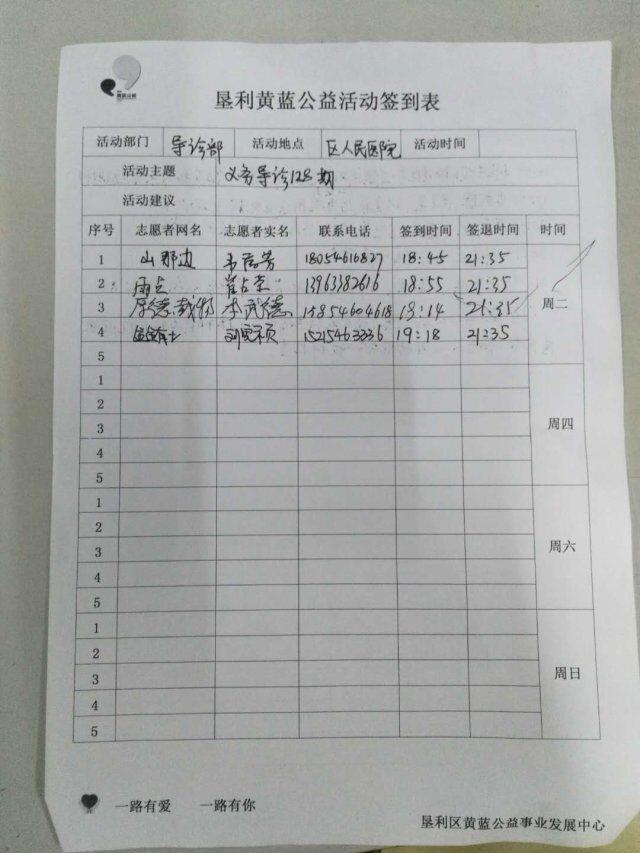 黄蓝公益
垦利黄蓝公益活动签到表
活动部门 导诊部 活动地点 区人民医院 活动时间
活动主题 义务导诊128期
活动建议
序号 志愿者网名 志愿者实名 联系电话 签到时间 签退时间 时间
1 山那边 18054616827 18:45 21:35
2 雨点 13963382616 18:55 21:35
3 厚德载物 李武德 15854604618 19:14 21:35
周二
4 15215463336 19:18 21:35
5
1
2
3
周四
4
5
1
2
3
周六
4
5
1
2
3
周日
4
5
一路有爱 一路有你
垦利区黄蓝公益事业发展中心